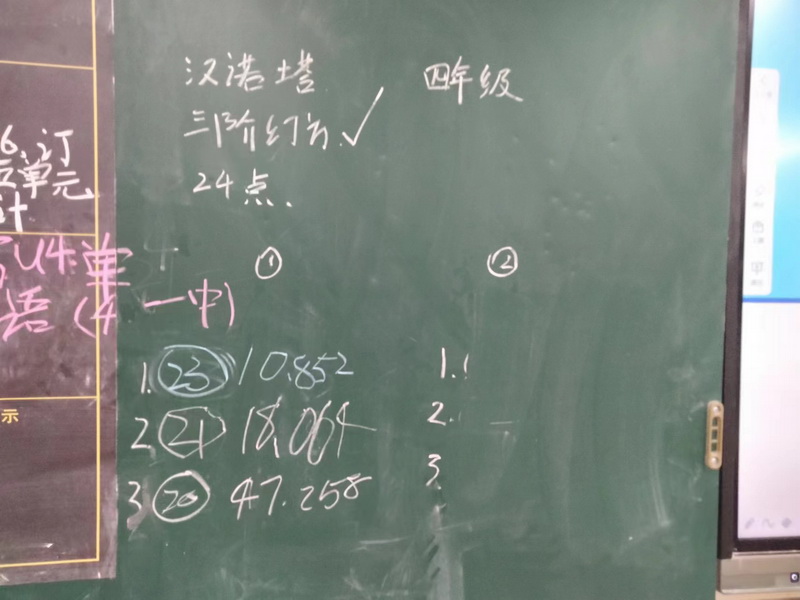 汉诺塔 四年级
三阶幻方 ✓
24点.
6、订
单元
计
U4单
语(4 一中)
示
① ②
1. 23 10.852 1.
2. 21 18.064 2.
3 20 47.258 3.